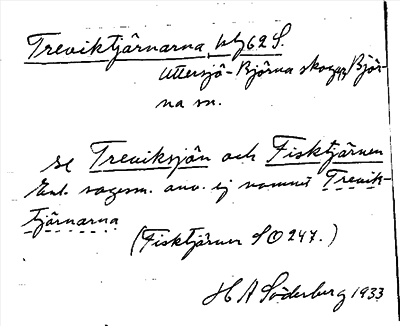 Treviktjärnarna, 62 S.
Uttersjö-Björna skog, Björ-
na sn.
se Treviksjön och Fisktjärnen
Enl. sagesm. anv. ej namnet Trevik-
tjärnarna
(Fisktjärnen SO 247.)
H A Söderberg 1933